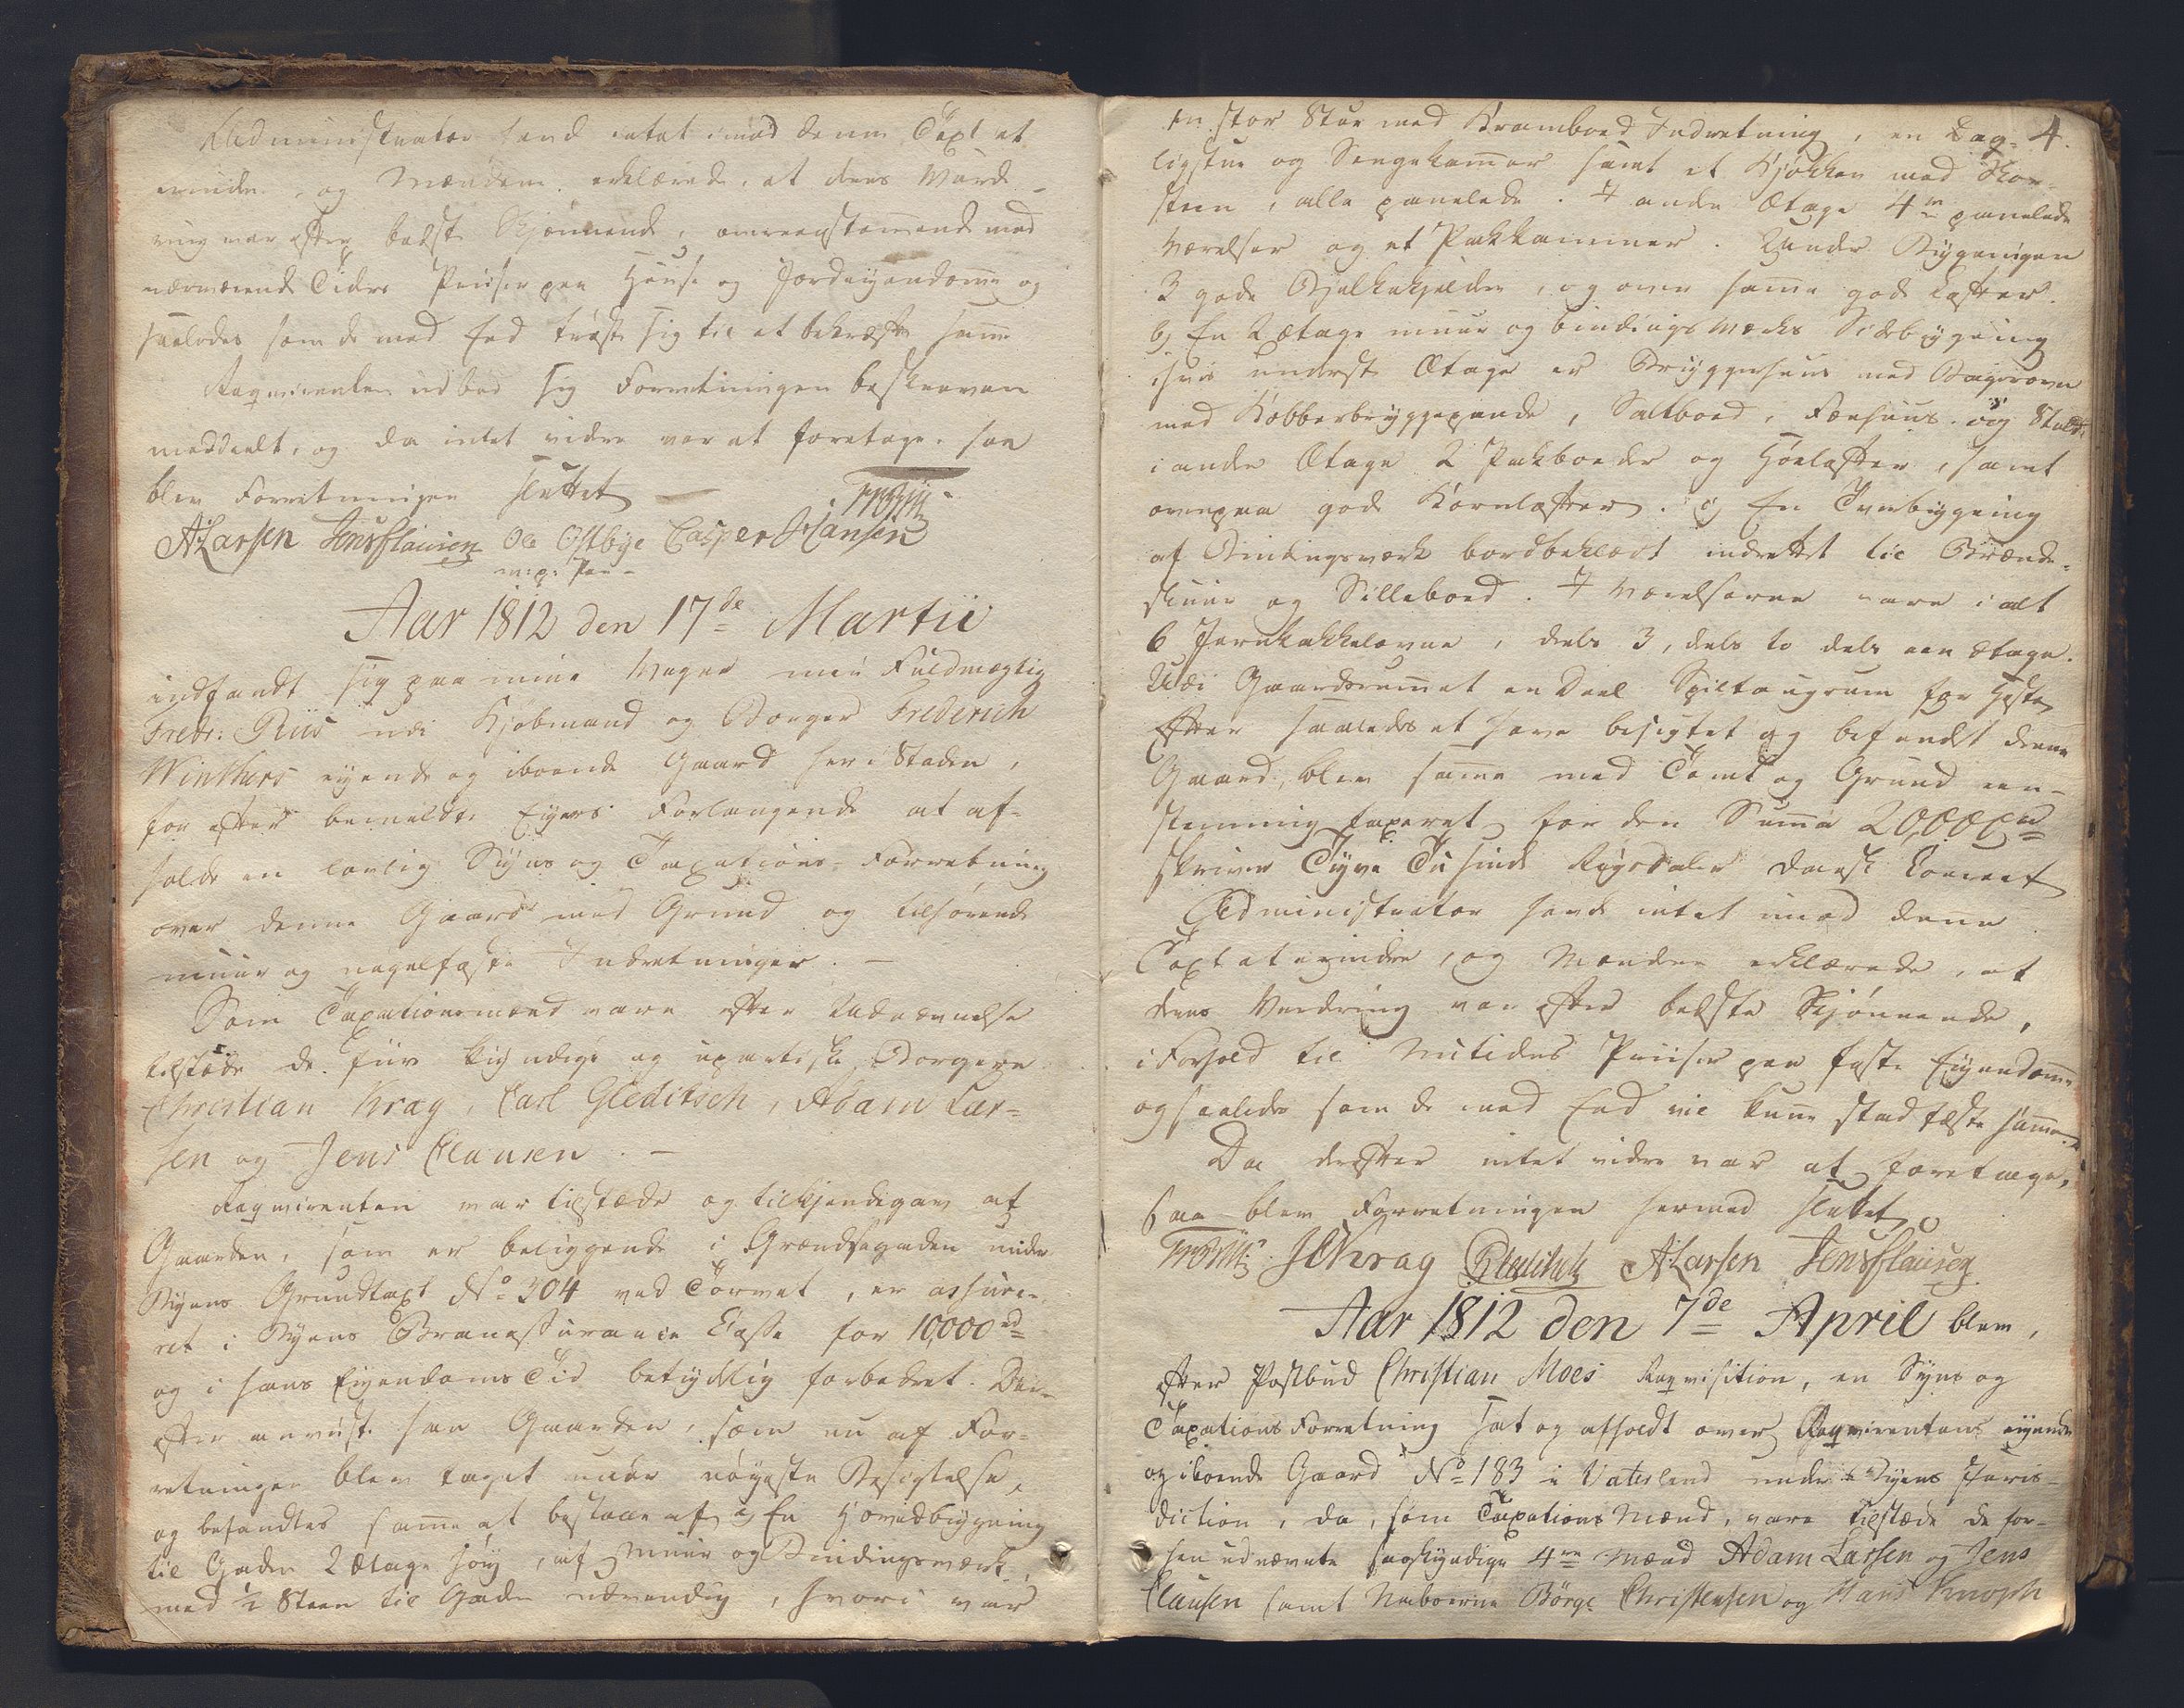 Administrator havde intet imod denne Taxt at
erindre, og Mændene erklærede, at deres Vurde-
ring var efter bedste Skjønnende, overeenstemmende med
nærværende Tiders Priiser paa Huuse og Jordeyendomme og
saaledes som de med Eed trøste sig til at bekræfte samme
Reqvirenten udbad sig Forretningen beskreven
meddeelt, og da intet videre var at foretage, saa
blev Forretningen sluttet
ALarsen JensClausen Ole Ostbye Casper Hansen
m: p: Pen
Aar 1812 den 17de Martii
indfandt sig paa mine Vegne min Fuldmægtig
Fredr: Riis udi Kjøbmand og Borger Frederich
Winthers eyende og iboende Gaard her i Staden,
for efter bemeldte Eyers Forlangende at af-
holde en lovlig Syns og Taxations-Forretning
over denne Gaard med Grund og tilhørende
muur og nagelfaste Indretninger. —
Som Taxationsmænd vare efter Udnævnelse
tilstæde de fiire kyndige og upartiske Borgere
Christian Krag, Carl Gleditsch, Adam Lar-
sen og Jens Clausen. —
Reqvirenten var tilstæde og tilkjendegav at
Gaarden, som er beliggende i Grændsegaden under
Byens Grundtaxt No 304 ved Torvet, er assure-
ret i Byens Brandassurance Casse for 10,000 rd
og i hans Eyendoms Tid betydelig forbedret. Der-
efter anviiste han Gaarden, som nu af For-
retningen blev taget under nøyeste Besigtelse,
og befandtes samme at bestaae af a, En Hovedbygning
til Gaden 2 Etage høy, af Muur og Bindingsværk,
med ½ Steen til Gaden udvendig, hvori var
4.
en stor Stue med Kramboed Indretning, en Dag-
ligstue og Sengekammer samt et Kjøkken med Skor-
steen, alle panelede. I anden Etage 4re panelede
Værelser og et Pakkammer. Under Bygningen
3 gode Bjelkekjeldere, og over samme gode Lofter.
b, En 2 Etage muur og bindingsværks Sidebygning
i hvis underste Etage er Bryggerhuus med Bagerovn
med Kobberbryggepande, Saltboed, Fæehuus og Stald,
i anden Etage 2 Pakboeder og Høeloft, samt
ovenpaa gode Kornlofter. c, En Tverbygning
af Bindingsværk bordbeklædt indrettet til Brænde-
skuur og Silleboed. I Værelserne vare i alt
6 Jernkakkelovne, deels 3, deels to deels een Etage.
Udi Gaardsrummet en Deel Spiltougrum for Heste
Efter saaledes at have besigtet og befundet denne
Gaard, blev samme med Tomt og Grund een-
stemmig taxeret for den Summa 20,000 rd
skriver Tyve Tusinde Rigsdaler dansk Courant
Administrator havde intet imod denne
Taxt at erindre, og Mændene erklærede, at
deres Vurdring var efter bedste Skjønnende,
i Forhold til Nutidens Priiser paa faste Eyendomme
og saaledes som de med Eed vil kunne stadfæste samme.
Da derefter intet videre var at foretage,
saa blev Forretningen hermed sluttet
Krag CGleditsch ALarsen JensClausen
Aar 1812 den 7de April blev,
efter Postbud Christian Moes Reqvisition, en Syns og
Taxations Forretning sat og afholdt over Reqvirentens eyende
og iboende Gaard No 183 i Vaterland under Byens Juris-
diction, da, som Taxations Mænd, vare tilstæde de for-
hen udnævnte sagkyndige 4re Mænd Adam Larsen og Jens
Clausen samt Naboerne Börge Christensen og Hans Knoph